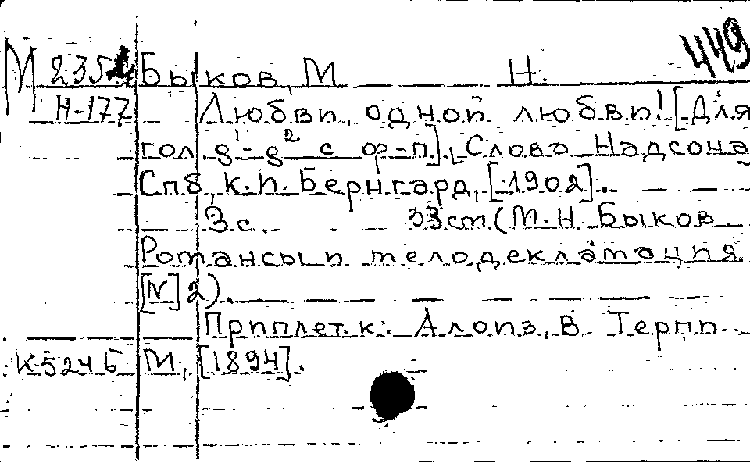 449
М 235 Быков, М Н.
Н-177 Любви, одной любви! [Для
гол. g¹-g² с ф-п]. Слова Надсона
Спб, К.П. Бернгард, [1902].
3 с. 33 см (М. Н. Быков
Романсы и мелодекламация
[N] 2).
Приплет. к: Алоиз, В. Терпи
К5246 М., [1894].